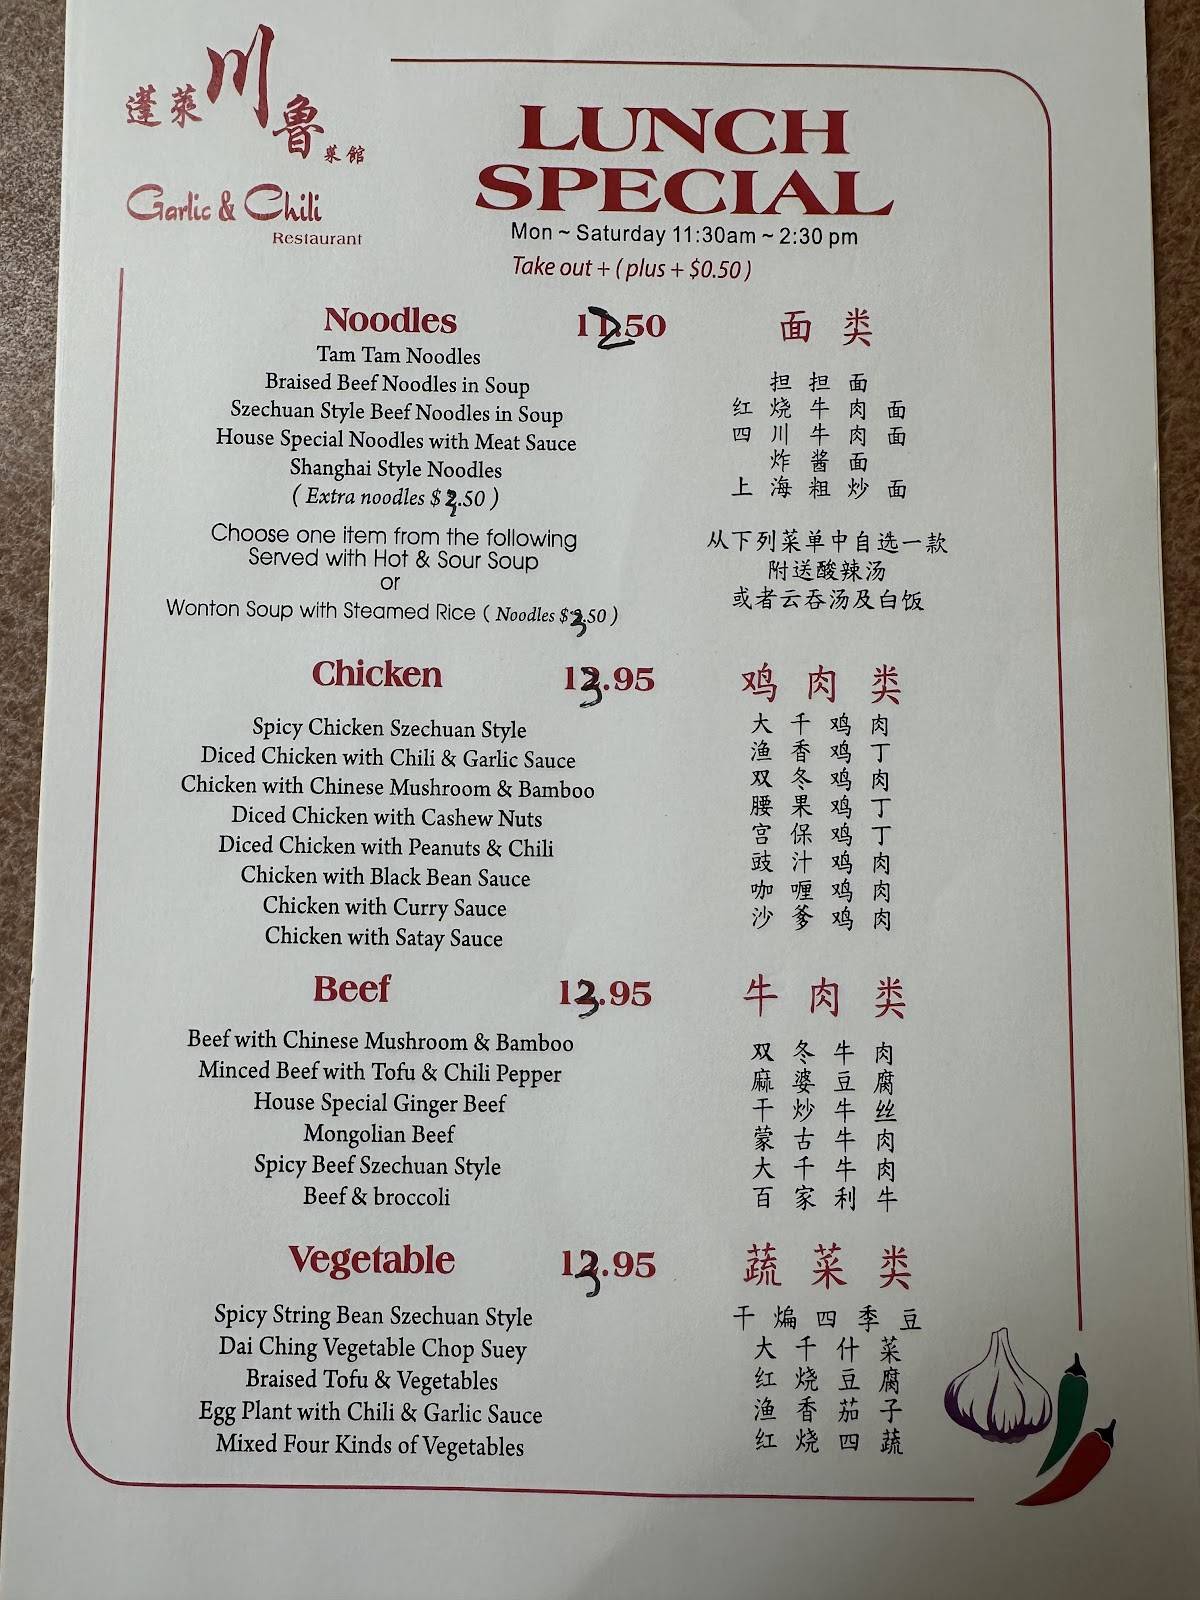 蓬莱川魯菜館
Garlic & Chili
Restaurant
LUNCH
SPECIAL
Mon ~ Saturday 11:30am ~ 2:30 pm
Take out + ( plus + $0.50 )
Noodles 12.50 面类
Tam Tam Noodles
担担面
Braised Beef Noodles in Soup
红烧牛肉面
Szechuan Style Beef Noodles in Soup
四川牛肉面
House Special Noodles with Meat Sauce
炸酱面
Shanghai Style Noodles
上海粗炒面
( Extra noodles $ .50 )
Choose one item from the following
从下列菜单中自选一款
Served with Hot & Sour Soup
附送酸辣汤
or
Wonton Soup with Steamed Rice ( Noodles $3.50 )
或者云吞汤及白饭
Chicken 13.95 鸡肉类
Spicy Chicken Szechuan Style
大千鸡肉
Diced Chicken with Chili & Garlic Sauce
渔香鸡丁
Chicken with Chinese Mushroom & Bamboo
双冬鸡肉
Diced Chicken with Cashew Nuts
腰果鸡丁
Diced Chicken with Peanuts & Chili
宫保鸡丁
Chicken with Black Bean Sauce
豉汁鸡肉
Chicken with Curry Sauce
咖喱鸡肉
Chicken with Satay Sauce
沙爹鸡肉
Beef 13.95 牛肉类
Beef with Chinese Mushroom & Bamboo
双冬牛肉
Minced Beef with Tofu & Chili Pepper
麻婆豆腐
House Special Ginger Beef
干炒牛丝
Mongolian Beef
蒙古牛肉
Spicy Beef Szechuan Style
大千牛肉
Beef & broccoli
百家利牛
Vegetable 13.95 蔬菜类
Spicy String Bean Szechuan Style
干煸四季豆
Dai Ching Vegetable Chop Suey
大千什菜
Braised Tofu & Vegetables
红烧豆腐
Egg Plant with Chili & Garlic Sauce
渔香茄子
Mixed Four Kinds of Vegetables
红烧四蔬